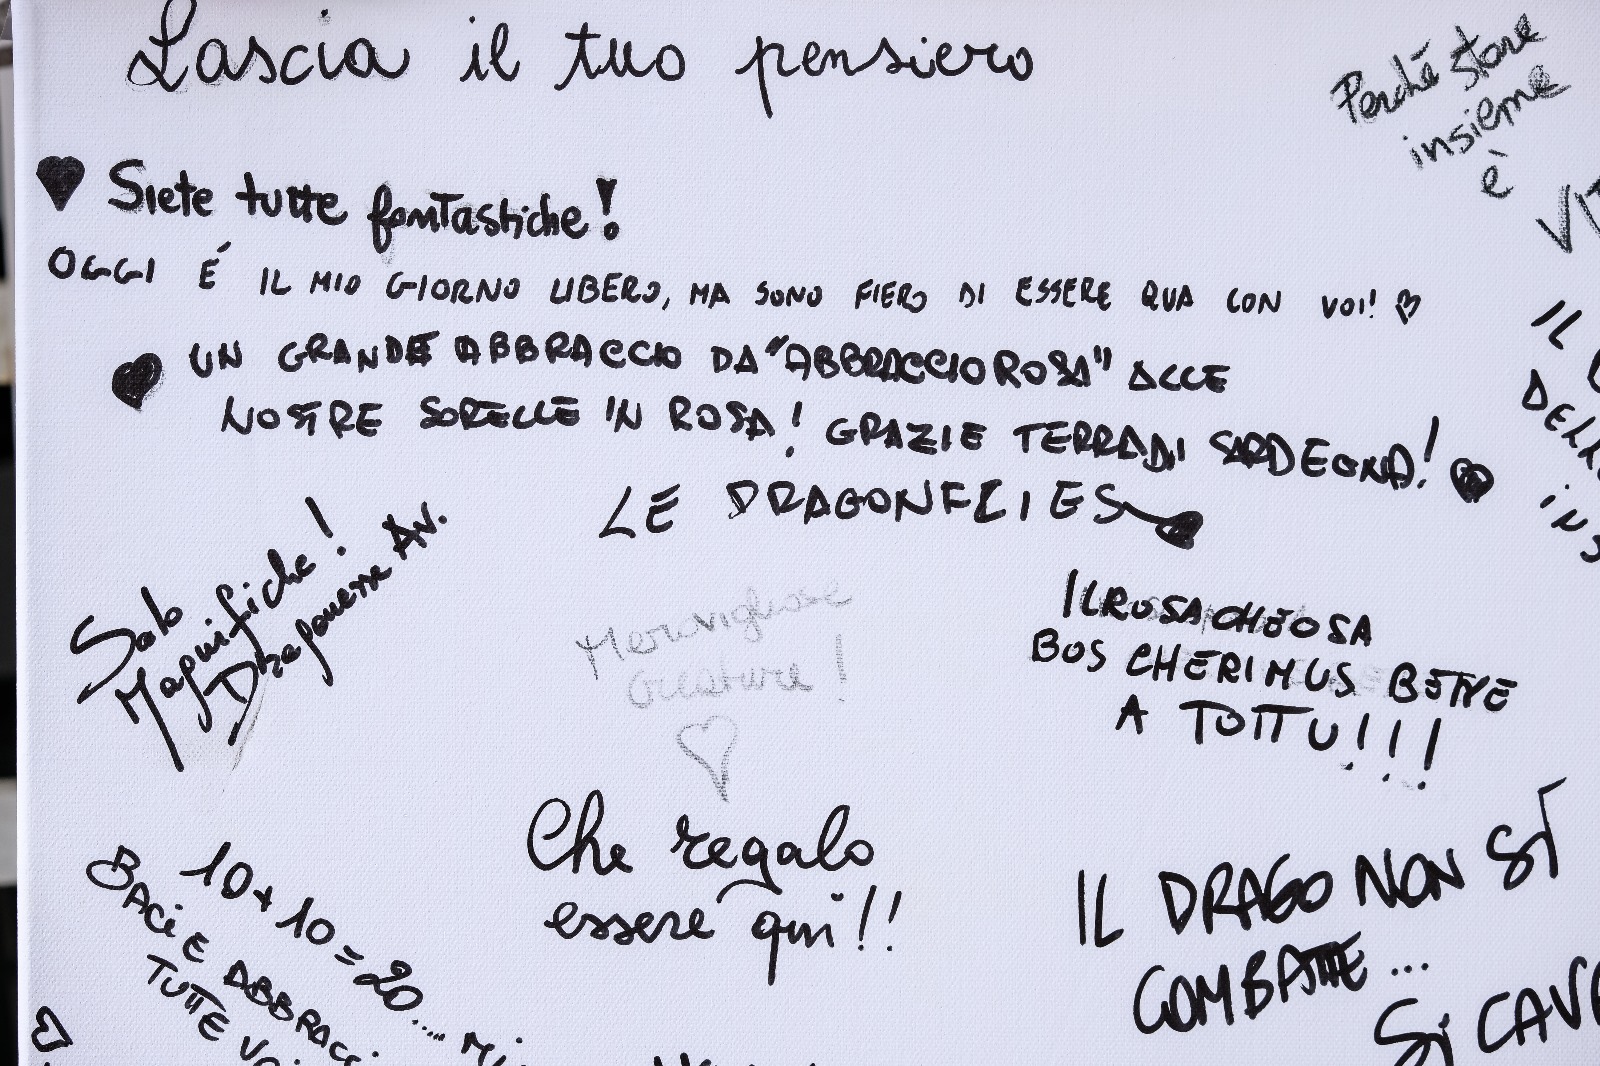 Lascia il tuo pensiero
Perchè stare
insieme
è
Siete tutte fantastiche!
OGGI É IL MIO GIORNO LIBERO, MA SONO FIERO DI ESSERE QUA CON VOI!
UN GRANDE ABBRACCIO DA "ABBRACCIOROSA" ALLE
NOSTRE SORELLE IN ROSA! GRAZIE TERRA DI SARDEGNA!
LE DRAGONFLIES
IL
DELL
INS
Solo
Magnifiche!
Dragonette Av.
Meravigliose
creature!
IL ROSA CHE OSA
BOS CHERIMUS BENE
A TOTTU!!!
Che regalo
essere qui!!
10+10=20....
BACI E ABBRACCI
TUTTE VOI
IL DRAGO NON SI
COMBATTE...
Si CAV